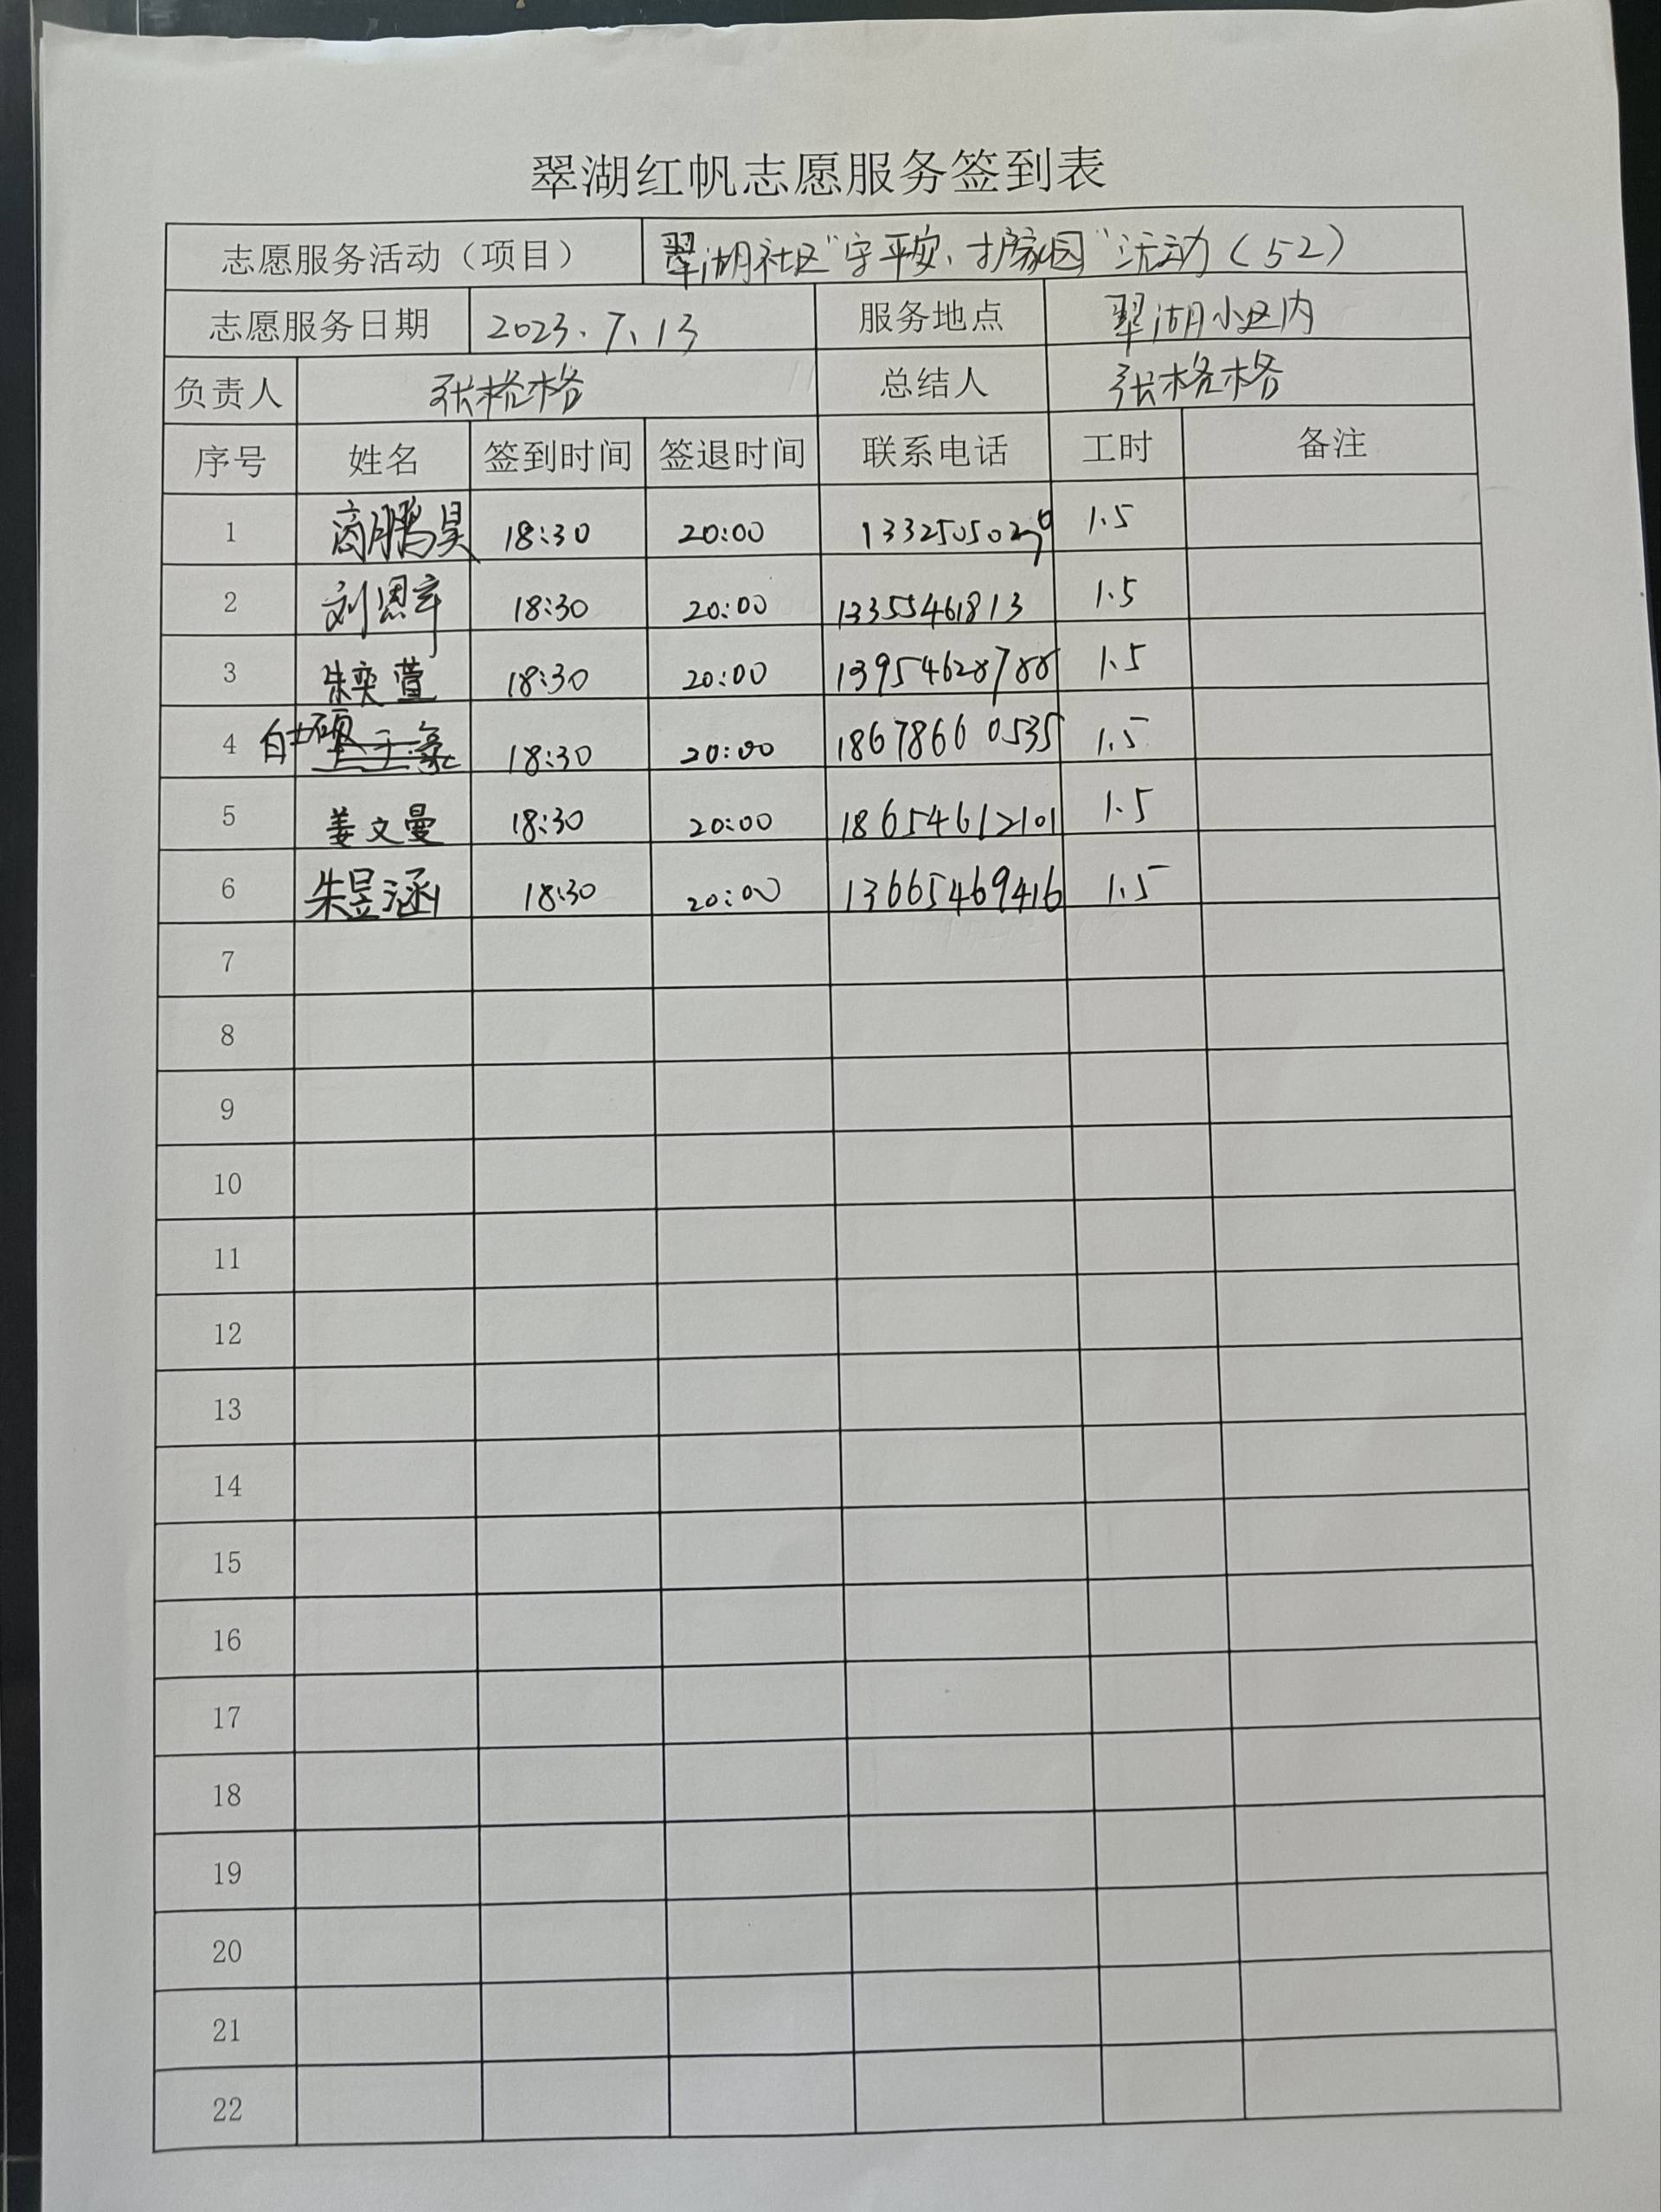 翠湖红帆志愿服务签到表
志愿服务活动（项目） 翠湖社区“守平安、护家园”活动（52）
志愿服务日期 2023.7.13 服务地点 翠湖小区内
负责人 张格格 总结人 张格格
序号 姓名 签到时间 签退时间 联系电话 工时 备注
1 商鹏昊 18:30 20:00 1.5
2 刘恩辛 18:30 20:00 13355461813 1.5
3 朱奕萱 18:30 20:00 13954628788 1.5
4 18:30 20:00 18678660535 1.5
5 姜文曼 18:30 20:00 18654612101 1.5
6 朱昱涵 18:30 20:00 13665469416 1.5
7
8
9
10
11
12
13
14
15
16
17
18
19
20
21
22